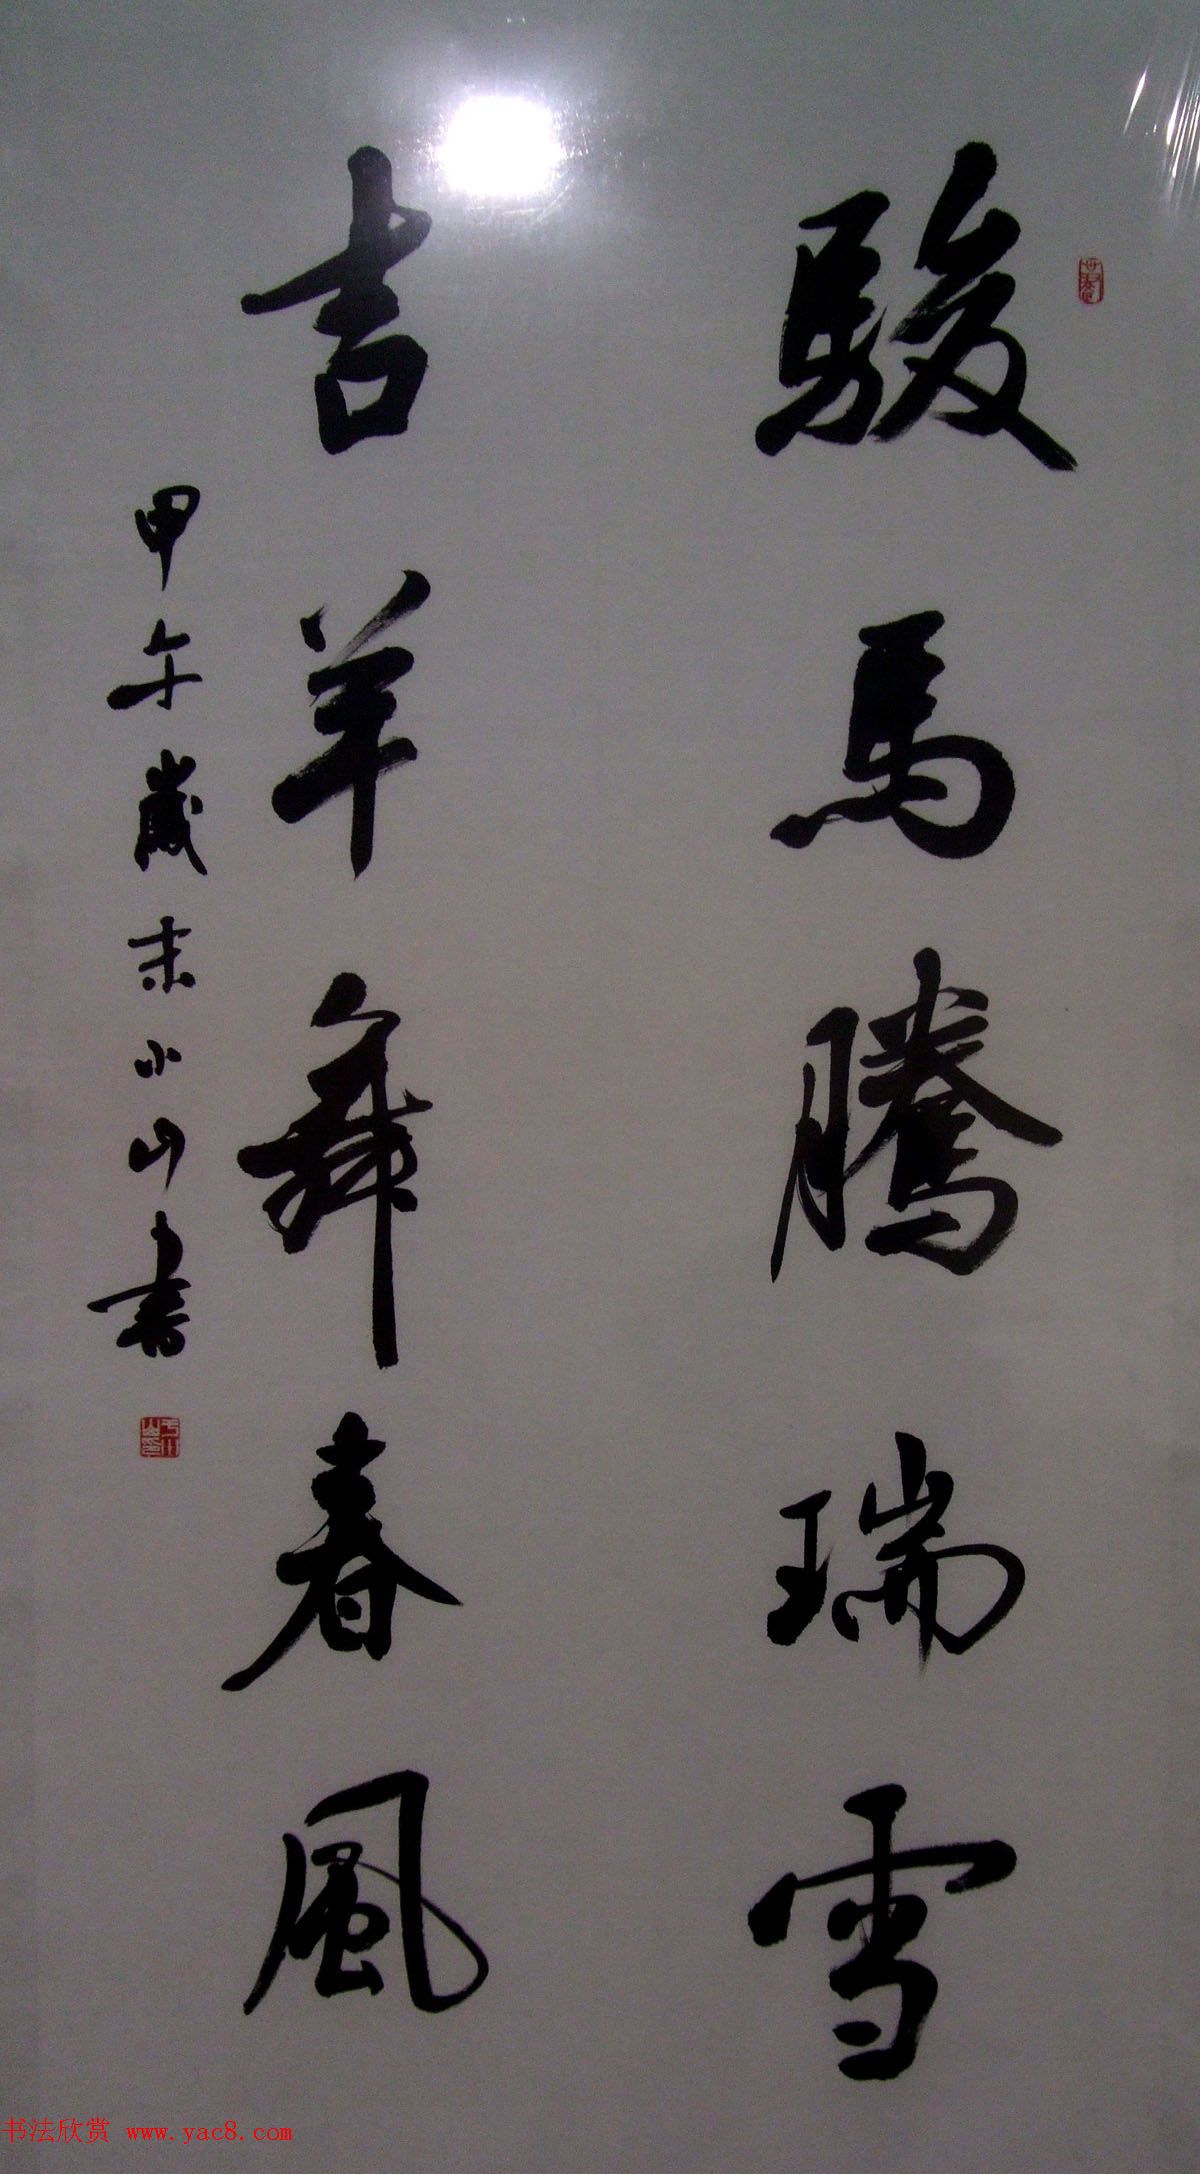 駿馬騰瑞雪
吉羊舞春風
甲午歲末小山書
书法欣赏 www.yac8.com